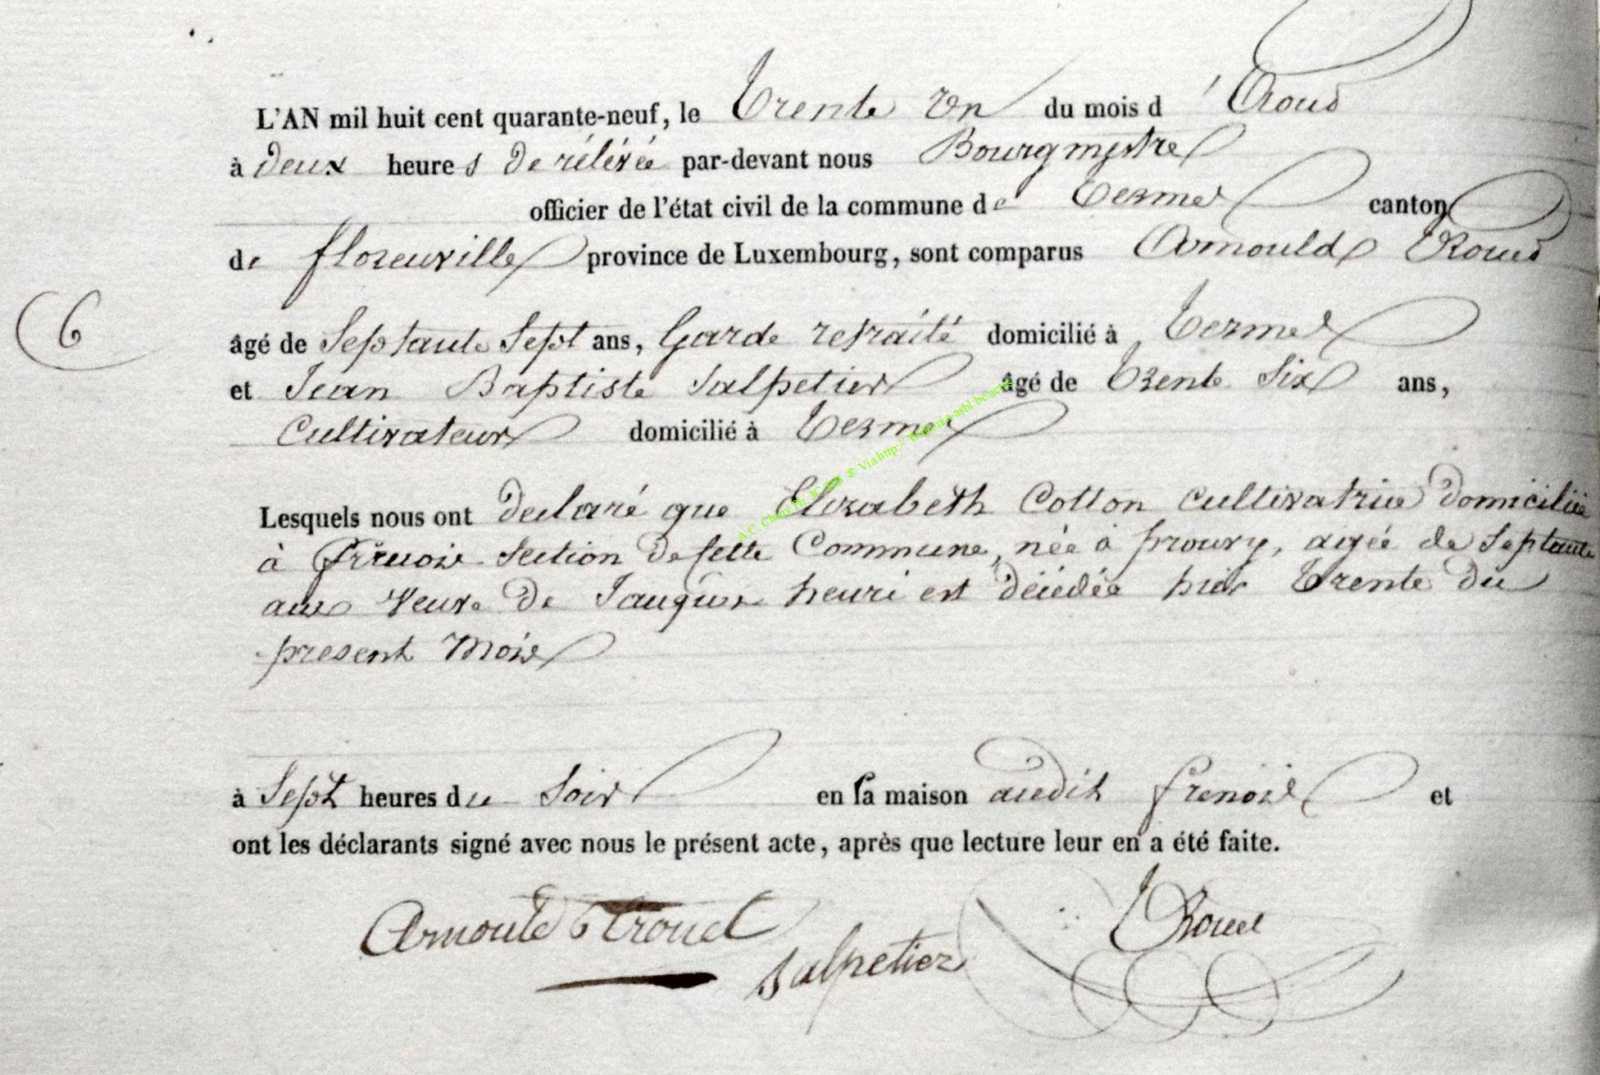 L'AN mil huit cent quarante-neuf, le trente un du mois d'Aoud
à deux heures de rélévée par-devant nous Bourgmestre
officier de l'état civil de la commune de Termes canton
de florenville province de Luxembourg, sont comparus Arnould
6
âgé de Septante Sept ans, Garde retraité domicilié à Termes
et Jean Baptiste Salpetier âgé de trente Six ans,
Cultivateur domicilié à Termes
Lesquels nous ont declaré que Elisabeth Cotton Cultivatrice domiciliée
à frenois Section de Cette Commune, née à prouvy, agée de Septante
ans Veuve de Jauquin henri est décédée hier trente du
present Mois
à Sept heures du Soir en sa maison audit frenois et
ont les déclarants signé avec nous le présent acte, après que lecture leur en a été faite.
Arnould
Salpetier